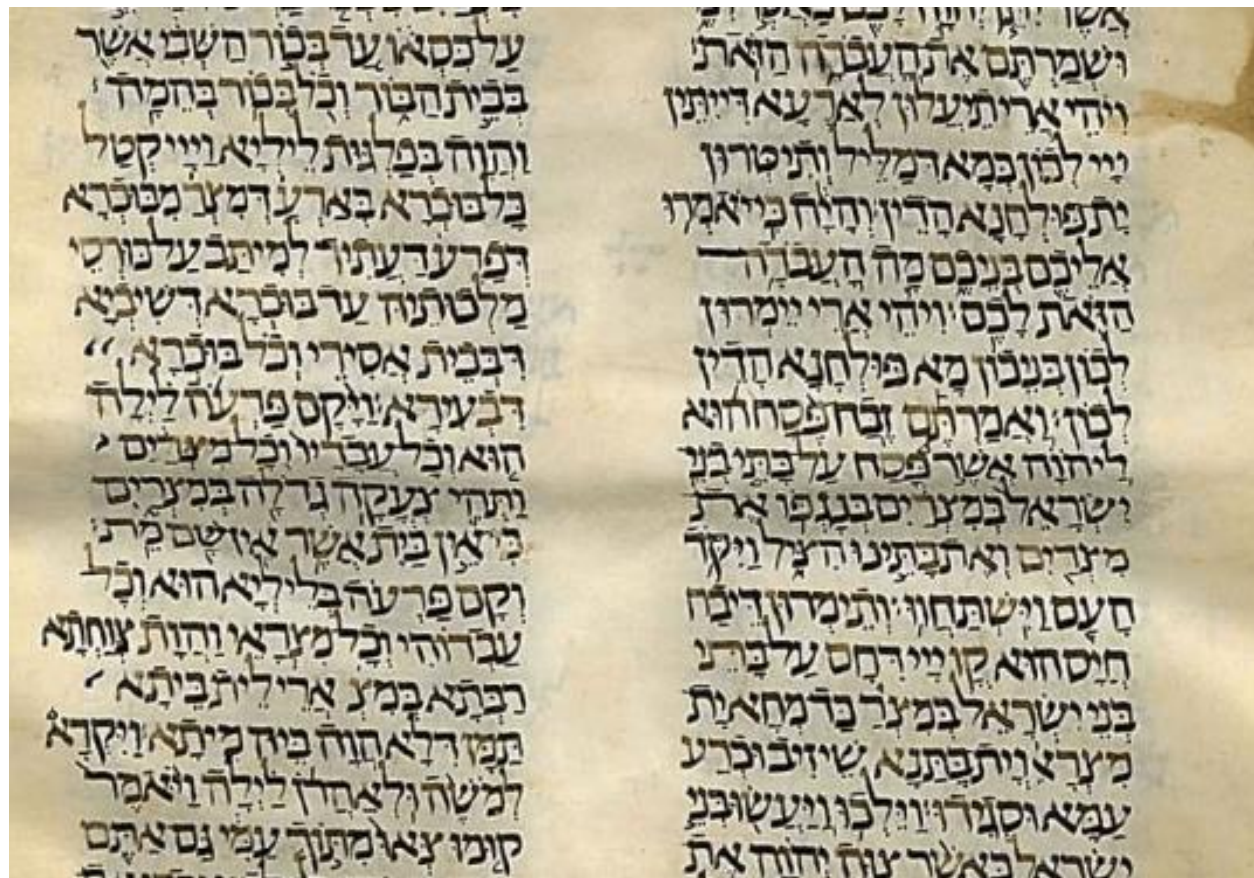 אשר יתן יהוה לכם כאשר דבר
ושמרתם את העבדה הזאת
ויהי ארי תעלון לארעא דייתין
ייי לכון כמא דמליל ותיטרון
ית פולחנא הדין והיה כי יאמרו
אליכם בניכם מה העבדה
הזאת לכם ויהי ארי יימרון
לכון בניכון מא פולחנא הדין
לכון ואמרתם זבח פסח הוא
ליהוה אשר פסח על בתי בני
ישראל במצרים בנגפו את
מצרים ואת בתינו הציל ויקד
העם וישתחוו ותימרון דיבח
חייס הוא ייי דרחס על בתי
בני ישראל במצר כד מחא ית
מצרא וית בתנא שיזיב וכרע
עמא וסגידו וילכו ויעשו בני
ישראל כאשר צוה יהוה את
על כסאו עד בכור השבי אשר
בבית הבור וכל בכור בהמה
והוה בפלגות ליליא וייי קטל
כל בוכרא בארע דמצר מבוכרא
דפרעה דעתיד למיתב על כורסי
מלכותיה עד בוכרא דשיביא
דבבית אסירי וכל בוכרא
דבעירא ויקם פרעה לילה
הוא וכל עבדיו וכל מצרים
ותהי צעקה גדלה במצרים
כי אין בית אשר אין שם מת
וקם פרעה בליליא הוא וכל
עבדוהי וכל מצראי והות צוחתא
רבתא במצ ארי לית ביתא
תמן דלא הוה ביה מיתא ויקרא
למשה ולאהרן לילה ויאמר
קומו צאו מתוך עמי גם אתם